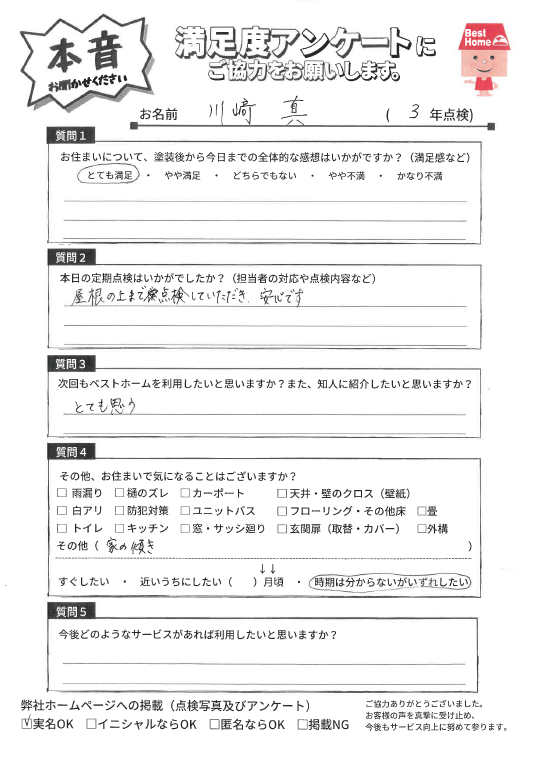 本音
お聞かせください
満足度アンケートに
ご協力をお願いします。
Best
Home
お名前 川﨑 真 ( 3 年点検)
質問1
お住まいについて、塗装後から今日までの全体的な感想はいかがですか?(満足感など)
とても満足 ・ やや満足 ・ どちらでもない ・ やや不満 ・ かなり不満
質問2
本日の定期点検はいかがでしたか?(担当者の対応や点検内容など)
屋根の上まで点検していただき、安心です
質問3
次回もベストホームを利用したいと思いますか?また、知人に紹介したいと思いますか?
とても思う
質問4
その他、お住まいで気になることはございますか?
□ 雨漏り □ 樋のズレ □ カーポート □ 天井・壁のクロス(壁紙)
□ 白アリ □ 防犯対策 □ ユニットバス □ フローリング・その他床 □ 畳
□ トイレ □ キッチン □ 窓・サッシ廻り □ 玄関扉(取替・カバー) □ 外構
その他( 家の傾き )
↓↓
すぐしたい ・ 近いうちにしたい( )月頃 ・ 時期は分からないがいずれしたい
質問5
今後どのようなサービスがあれば利用したいと思いますか?
弊社ホームページへの掲載(点検写真及びアンケート)
☑実名OK □イニシャルならOK □匿名ならOK □掲載NG
ご協力ありがとうございました。
お客様の声を真摯に受け止め、
今後もサービス向上に努めて参ります。